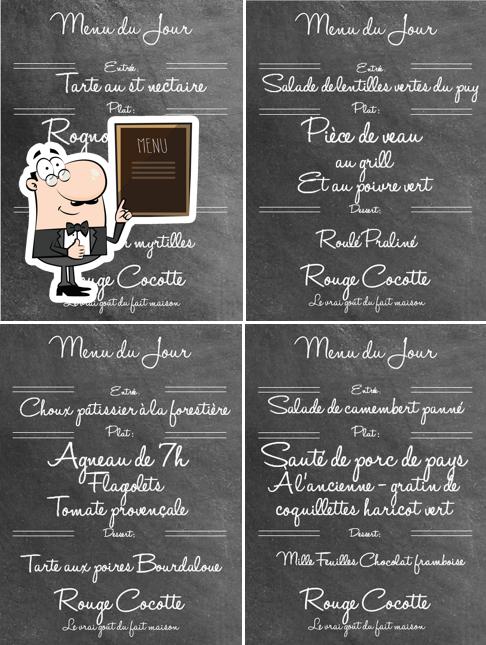 Menu du Jour
Entrée:
Tarte au st nectaire
Plat:
MENU
myrtilles
Cocotte
Le vrai goût du fait maison
Menu du Jour
Entrée:
Salade de lentilles vertes du puy
Plat:
Pièce de veau
au grill
Et au poivre vert
Dessert:
Roulé Praliné
Rouge Cocotte
Le vrai goût du fait maison
Menu du Jour
Entrée:
Choux pâtissier à la forestière
Plat:
Agneau de 7h
Flagolets
Tomate provençale
Dessert:
Tarte aux poires Bourdaloue
Rouge Cocotte
Le vrai goût du fait maison
Menu du Jour
Entrée:
Salade de camembert panné
Plat:
Sauté de porc de pays
A l'ancienne - gratin de
coquillettes haricot vert
Dessert:
Mille Feuilles Chocolat framboise
Rouge Cocotte
Le vrai goût du fait maison